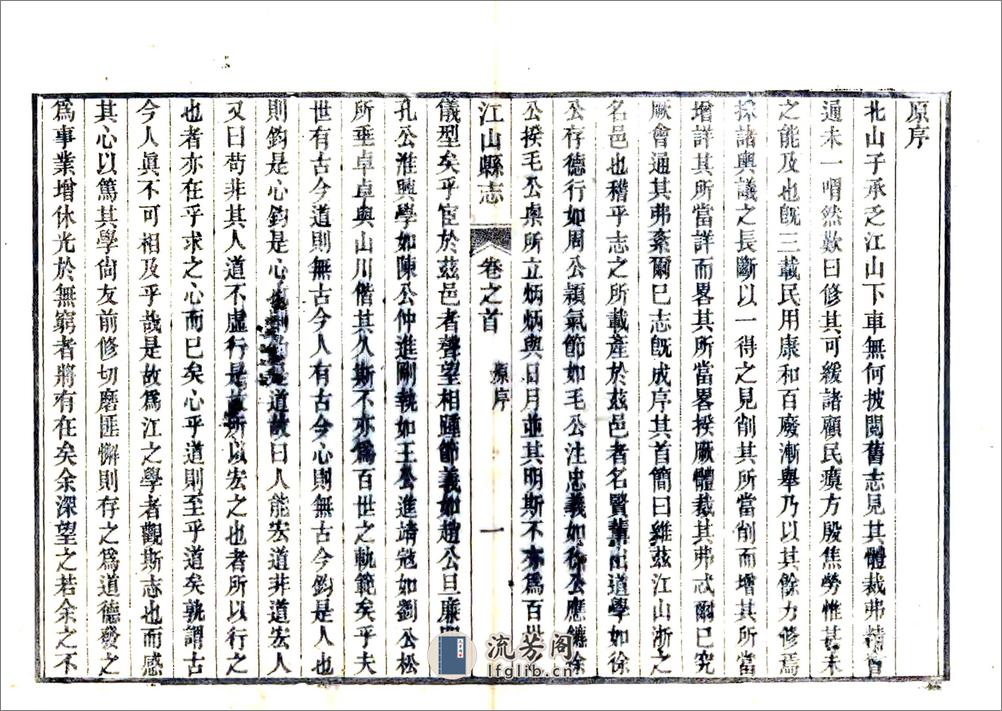 原序
北山子承乏江山下車無何披閱舊志見其體裁弗精會
通未一喟然歎曰修其可緩諸顧民瘼方殷焦勞惟甚未
之能及也旣三載民用康和百廢漸舉乃以其餘力修焉
採諸輿議之長斷以一得之見削其所當削而增其所當
增詳其所當詳而畧其所當畧揆厥體裁其弗忒爾已究
厥會通其弗紊爾已志旣成序其首簡曰維茲江山浙之
名邑也稽乎志之所載產於茲邑者名賢輩出道學如徐
公存德行如周公穎氣節如毛公注忠義如徐公應鑣徐
公揆毛公㮚所立炳炳與日月並其明斯不亦爲百世
江山縣志
卷之首
原序
一
儀型矣乎宦於茲邑者聲望相踵節義如趙公旦廉
孔公淮興學如陳公仲進剛執如王公進靖寇如劉公松
所垂卓卓與山川偕其久斯不亦爲百世之軌範矣乎夫
世有古今道則無古今人有古今心則無古今鈞是人也
則鈞是心鈞是心則鈞是道故曰人能宏道非道宏人
又曰苟非其人道不虛行是故所以宏之也者所以行之
也者亦在乎求之心而已矣心乎道則至乎道矣孰謂古
今人眞不可相及乎哉是故爲江之學者觀斯志也而感
其心以篤其學尙友前修切磨匪懈則存之爲道德發之
爲事業增休光於無窮者將有在矣余深望之若余之不
流芳阁
lfglib.cn